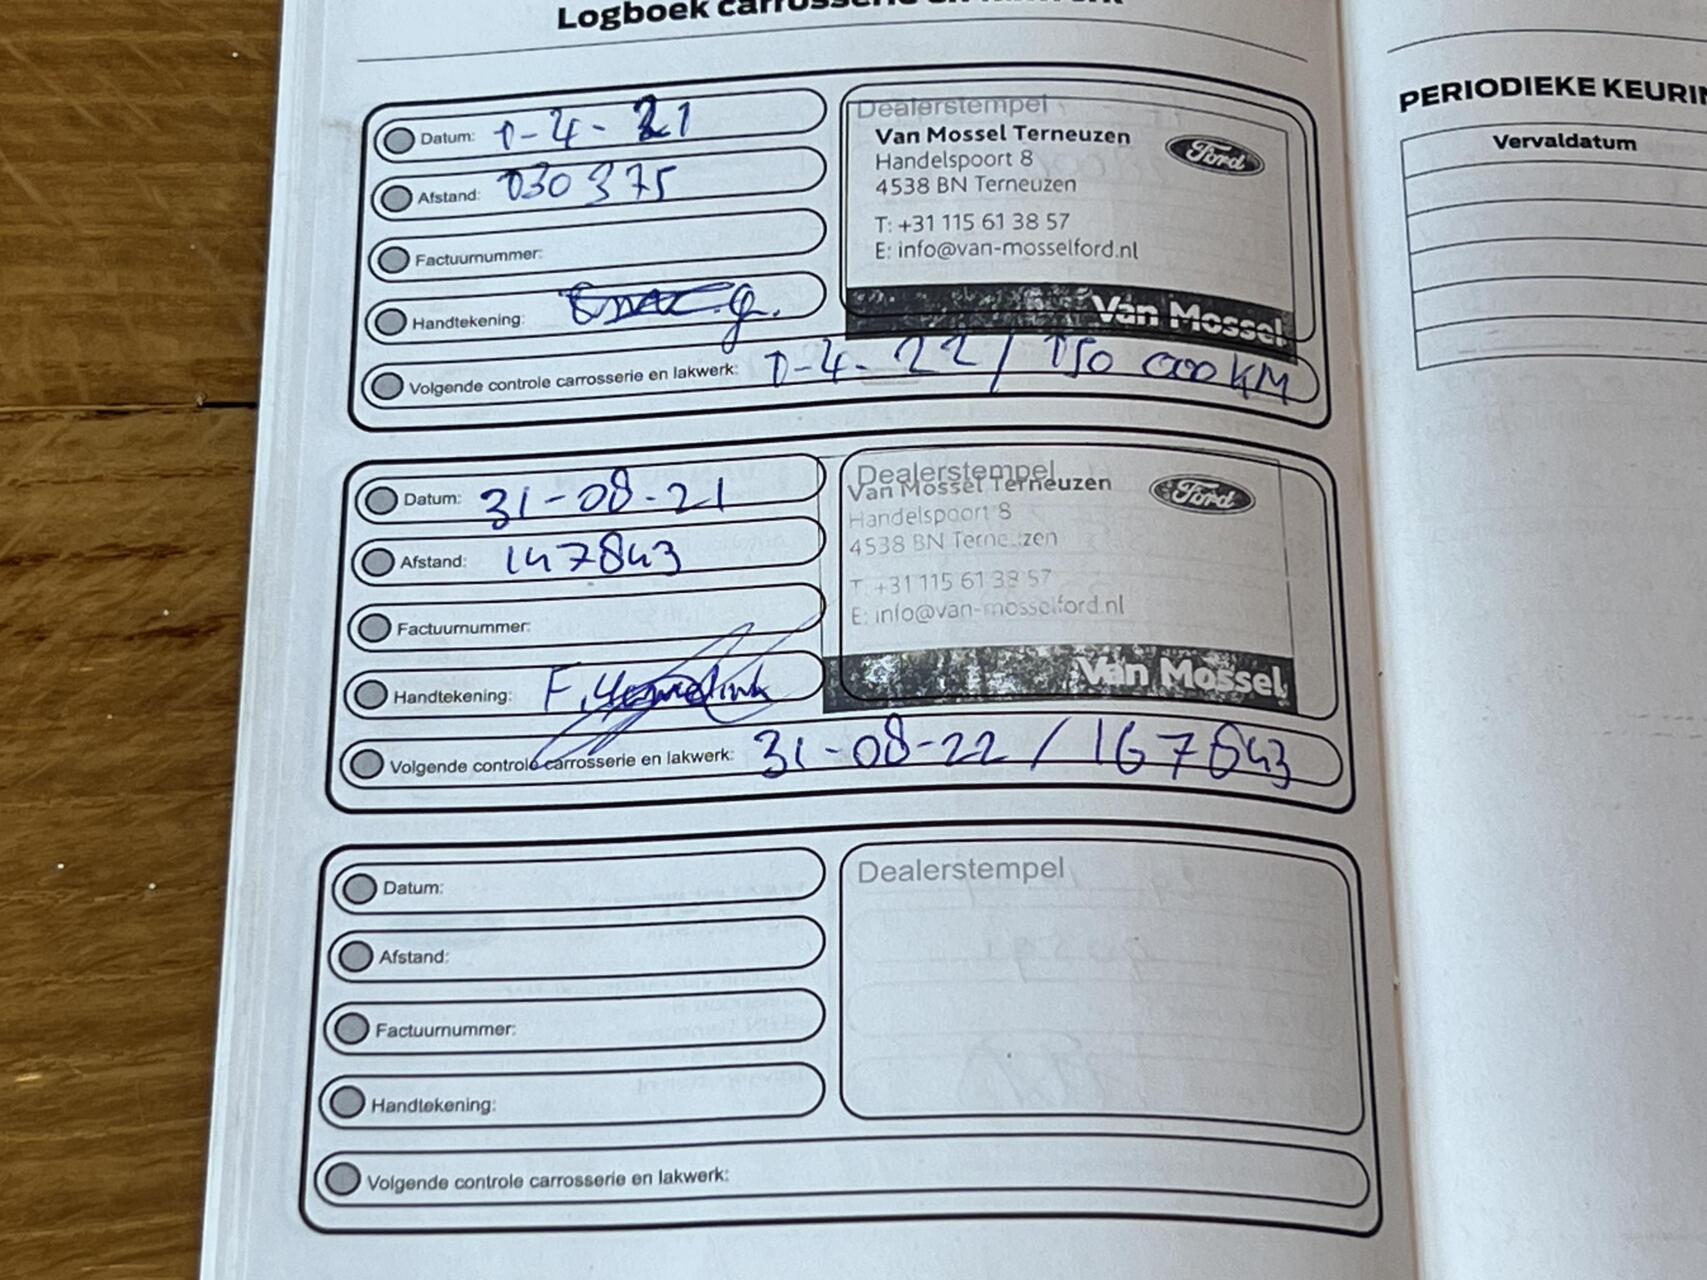 Logboek carrosserie en lakwerk
Datum: 1-4-21
Afstand: 130375
Factuurnummer:
Handtekening:
Volgende controle carrosserie en lakwerk: 1-4-22 / 150 000 KM
Dealerstempel
Van Mossel Terneuzen
Handelspoort 8
4538 BN Terneuzen
T: +31 115 61 38 57
E: info@van-mosselford.nl
Ford
Van Mossel
Datum: 31-08-21
Afstand: 147843
Factuurnummer:
Handtekening: F.
Volgende controle carrosserie en lakwerk: 31-08-22 / 167843
Dealerstempel
Van Mossel Terneuzen
Handelspoort 8
4538 BN Terneuzen
T: +31 115 61 38 57
E: info@van-mosselford.nl
Ford
Van Mossel
Datum:
Afstand:
Factuurnummer:
Handtekening:
Volgende controle carrosserie en lakwerk:
Dealerstempel
PERIODIEKE KEURIN
Vervaldatum